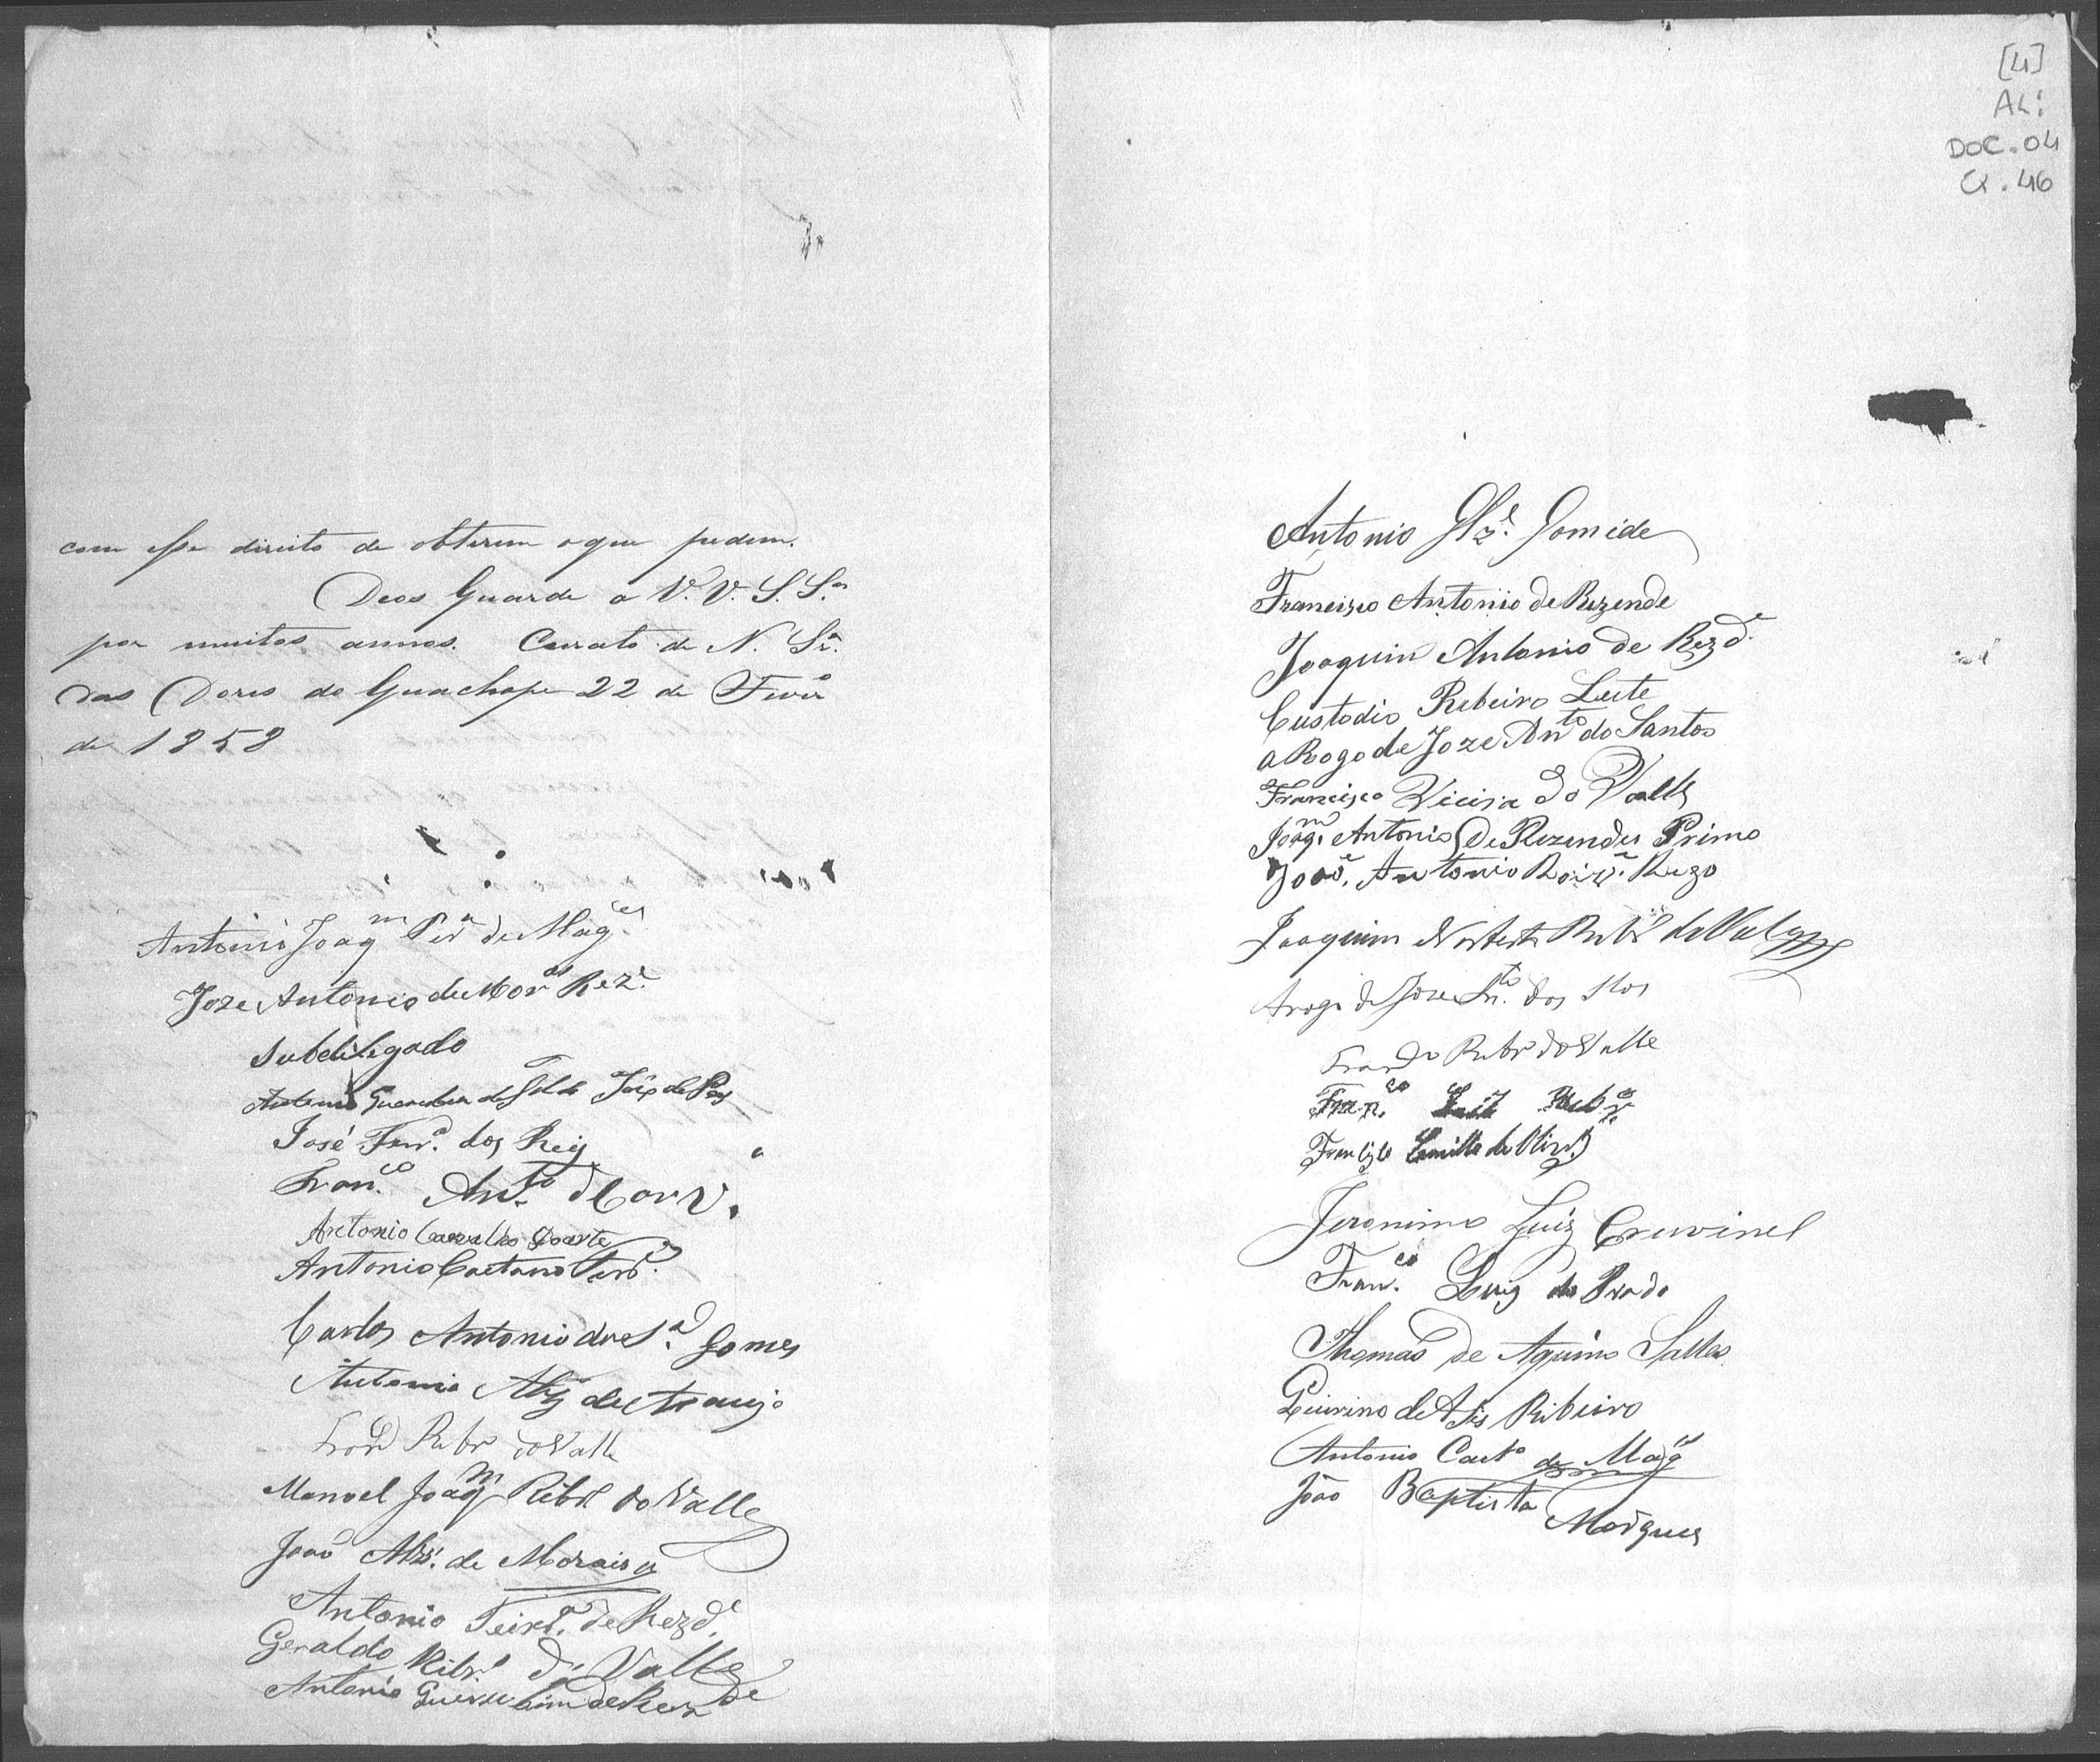 com esse direito de obterem o que pedem.
Deos Guarde a V.V. S.Sas
por muitos annos. Currato de N. Sra.
das Dores de Guachupe 22 de Fevro
de 1858
Antonio Joaqm Pera de Magces
Joze Antonio de Mor Reze
Subdelegado
Antonio
José Ferra. dos Reis
Franco. Anto
Antonio Carvalho Doarte
Antonio Caetano
Carlos Antonio de Sa. Gomes
Antonio Alz de Araujo
Franco Ribro do Valle
Manoel Joaqm Ribro do Valle
João Alvs. de Morais
Antonio Teixra. de Rezde.
Geraldo Ribro. do Valle
Antonio
[4]
AL:
DOC. 04
CX. 46
Antonio Glze. Gomide
Francisco Antonio de Rezende
Joaquim Antonio de Rezde.
Custodio Ribeiro Leite
a Rogo de Joze Anto do Santos
Francisco Vieira do Valle
Joaqm. Antonio De Rezendes Primo
João. Antonio Roiz. Rego
Joaquim Norberto Ribro do Vale
Arogo de Joze Anto. dos Stos
Franco Ribro do Valle
Franco. Leite Ribro
Francisco Camillo de Olivra
Jeronimo Luiz Cruvinel
Franco. Luiz do Prado
Thomas de Aquino Salles
de Asis Ribeiro
Antonio Caeto de Magces
João Baptista
Marques